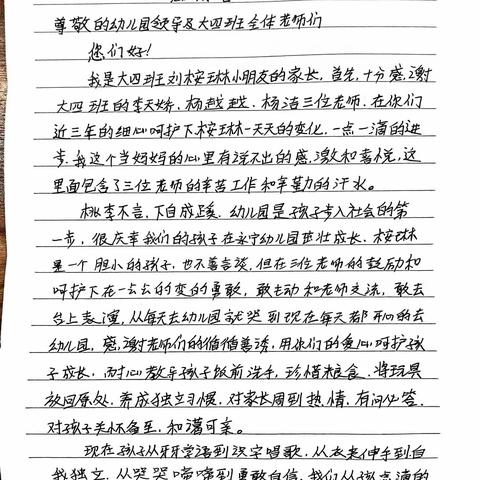 尊敬的幼儿园领导及大四班全体老师们
您们好!
我是大四班刘桉琳小朋友的家长,首先,十分感谢
大四班的李天娇、杨越越、杨洁三位老师,在你们
近三年的细心呵护下桉琳一天天的变化,一点一滴的进
步,我这个当妈妈的心里有说不出的感激和喜悦,这
里面包含了三位老师的辛苦工作和辛勤的汗水。
桃李不言,下自成蹊,幼儿园是孩子步入社会的第
一步,很庆幸我们的孩子在永宁幼儿园茁壮成长,桉琳
是一个胆小的孩子,也不善言谈,但在三位老师的鼓励和
呵护下在一点点的变的勇敢,敢主动和老师交流,敢去
台上表演,从每天去幼儿园就哭到现在每天都开心的去
幼儿园,感谢老师们的循循善诱,用你们的爱心呵护孩
子成长,耐心教导孩子饭前洗手,珍惜粮食,将玩具
放回原处,养成独立习惯,对家长周到热情,有问必答,
对孩子关怀备至,和蔼可亲。
现在孩子从牙牙学语到汉字唱歌,从衣来伸手到自
我独立,从哭哭啼啼到勇敢自信,我们从孩点滴的